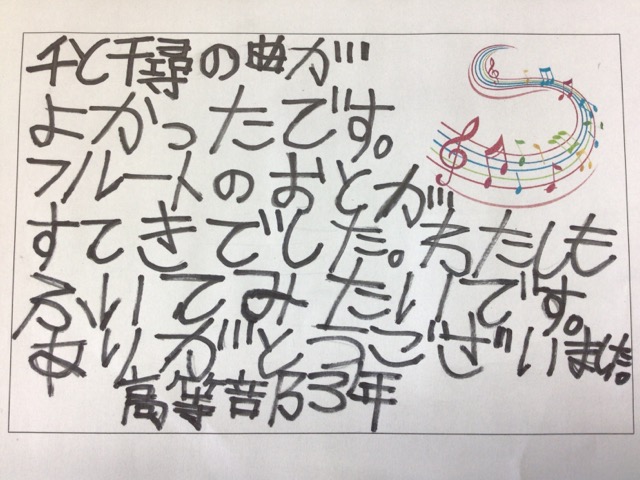 千と千尋の曲が
よかったです。
フルートのおとが
すてきでした。わたしも
ふいてみたいです。
ありがとうございました
高等部3年